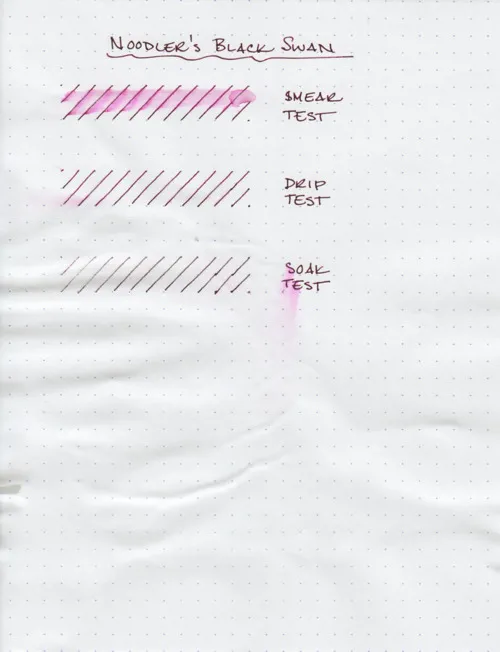 NOODLER'S BLACK SWAN
SMEAR
TEST
DRIP
TEST
SOAK
TEST